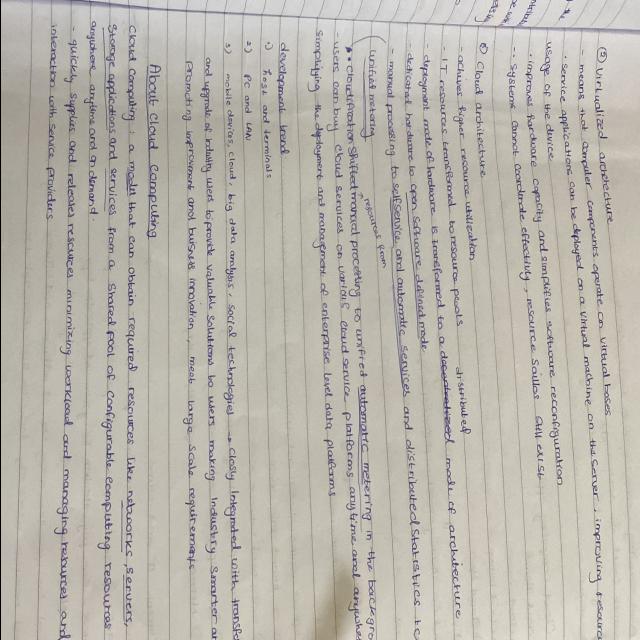 ② Virtualized architecture
- means that computer components operate on virtual bases
· service applications can be deployed on a virtual machine on the server, improving resourc
usage of the device
· improves hardware capacity and simplifies software reconfiguration
-- systems cannot coordinate effectively, resource still exist
③ Cloud architecture
- achives higher resource utilization
- IT resources transformed to resource pools distributed
- deployment mode of hardware is transformed to a mode of architecture
- dedicated hardware to open software defined mode
- manual processing to selfservice and automatic services and distributed statistics to
unified metering resources from
· cloudification shifted manual processing to unified automatic metering in the backgro
- users can buy cloud services on various cloud service platforms anytime and anywhere
simplifying the deployment and management of enterprise level data platforms
development trend
1) host and terminals
2) PC and LAN
3) mobile devices, cloud, big data analysis, social technologies → closly integrated with transfo
and upgrade of industry users to provide valuable solutions to users making industry smarter an
promoting improvement and business innovation, meet large scale requirements
About cloud computing
Cloud computing: a model that can obtain required resources like networks, servers,
storage applications and services from a shared pool of configurable computing resources
anywhere anytime and on demand.
- quickly supplies and releases resources minimizing workload and managing resources and
interaction with service providers